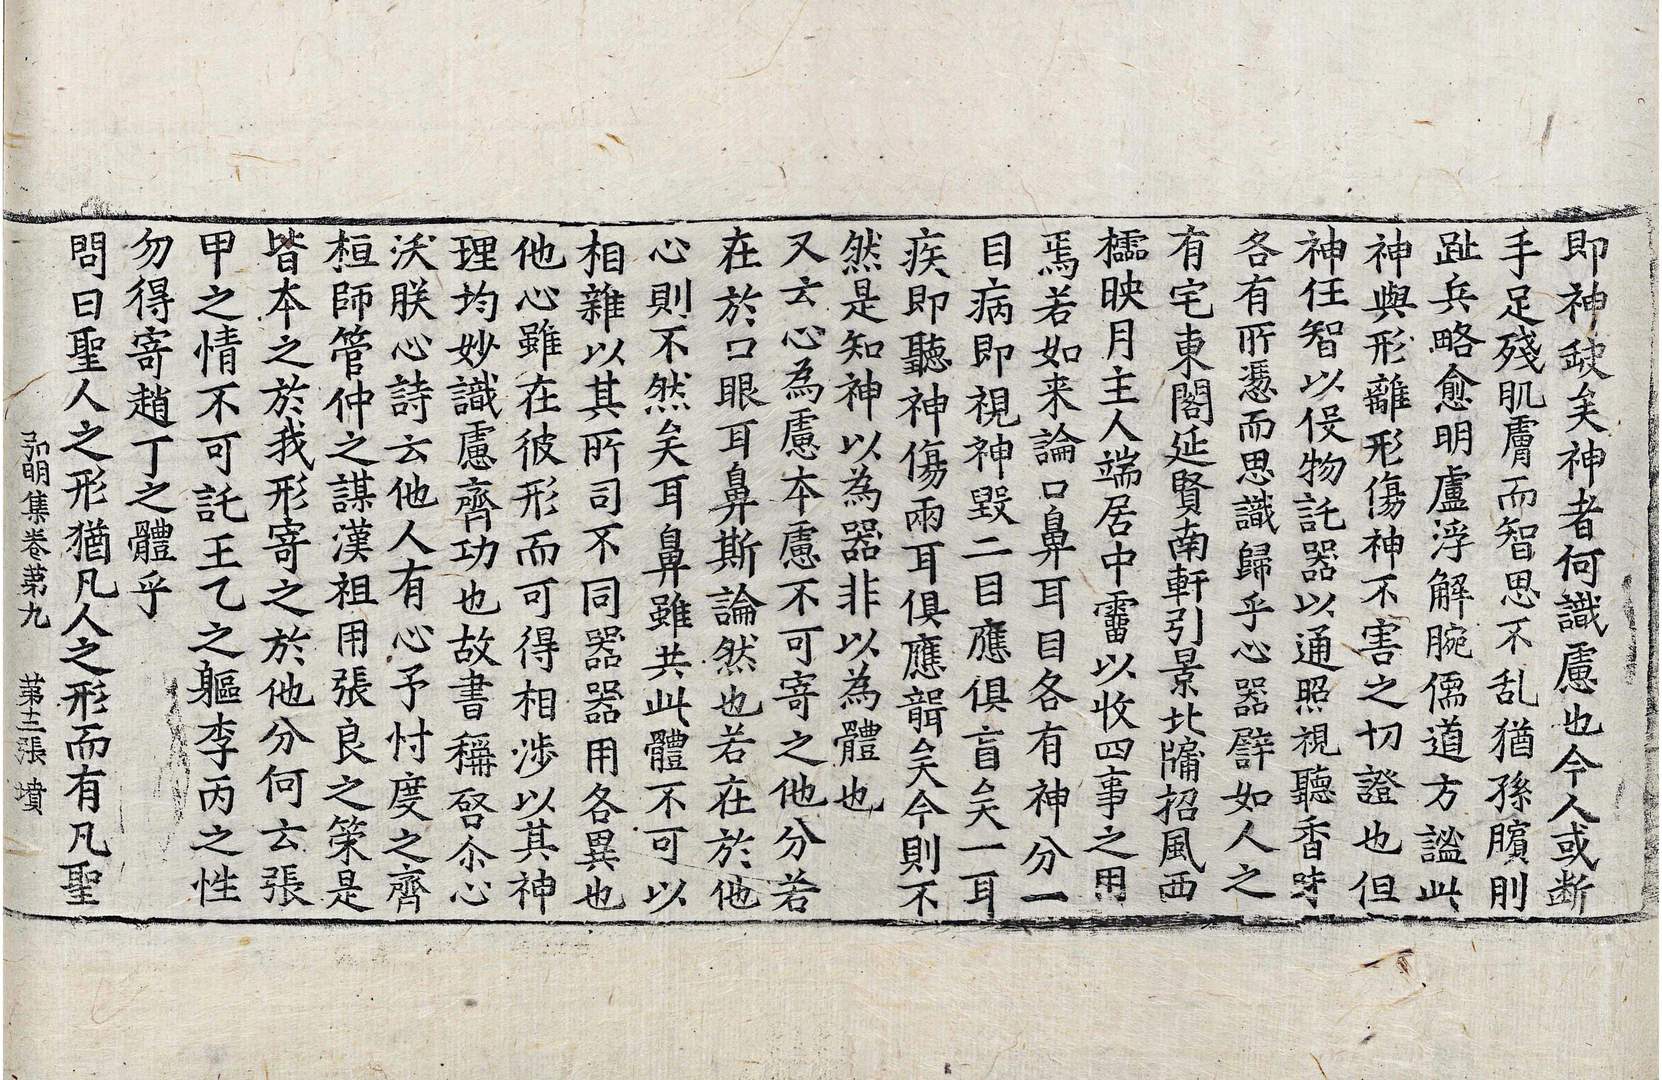 即神缺矣神者何識慮也今人或断
手足殘肌膚而智思不乱猶孫臏刖
趾兵略愈明盧浮解腕儒道方謐此
神與形離形傷神不害之切證也但
神任智以役物託器以通照視聽香味
各有所憑而思識歸乎心器譬如人之
有宅東閣延賢南軒引景北牖招風西
櫺映月主人端居中霤以收四事之用
焉若如来論口鼻耳目各有神分一
目病即視神毀二目應俱盲矣一耳
疾即聽神傷兩耳俱應聾矣今則不
然是知神以為器非以為體也
又云心為慮本慮不可寄之他分若
在於口眼耳鼻斯論然也若在於他
心則不然矣耳鼻雖共此體不可以
相雜以其所司不同器器用各異也
他心雖在彼形而可得相涉以其神
理均妙識慮齊功也故書稱啓尒心
沃朕心詩云他人有心予忖度之齊
桓師管仲之謀漢祖用張良之策是
皆本之於我形寄之於他分何云張
甲之情不可託王乙之軀李丙之性
勿得寄趙丁之體乎
問曰聖人之形猶凡人之形而有凡聖
弘明集卷第九 第三張 墳